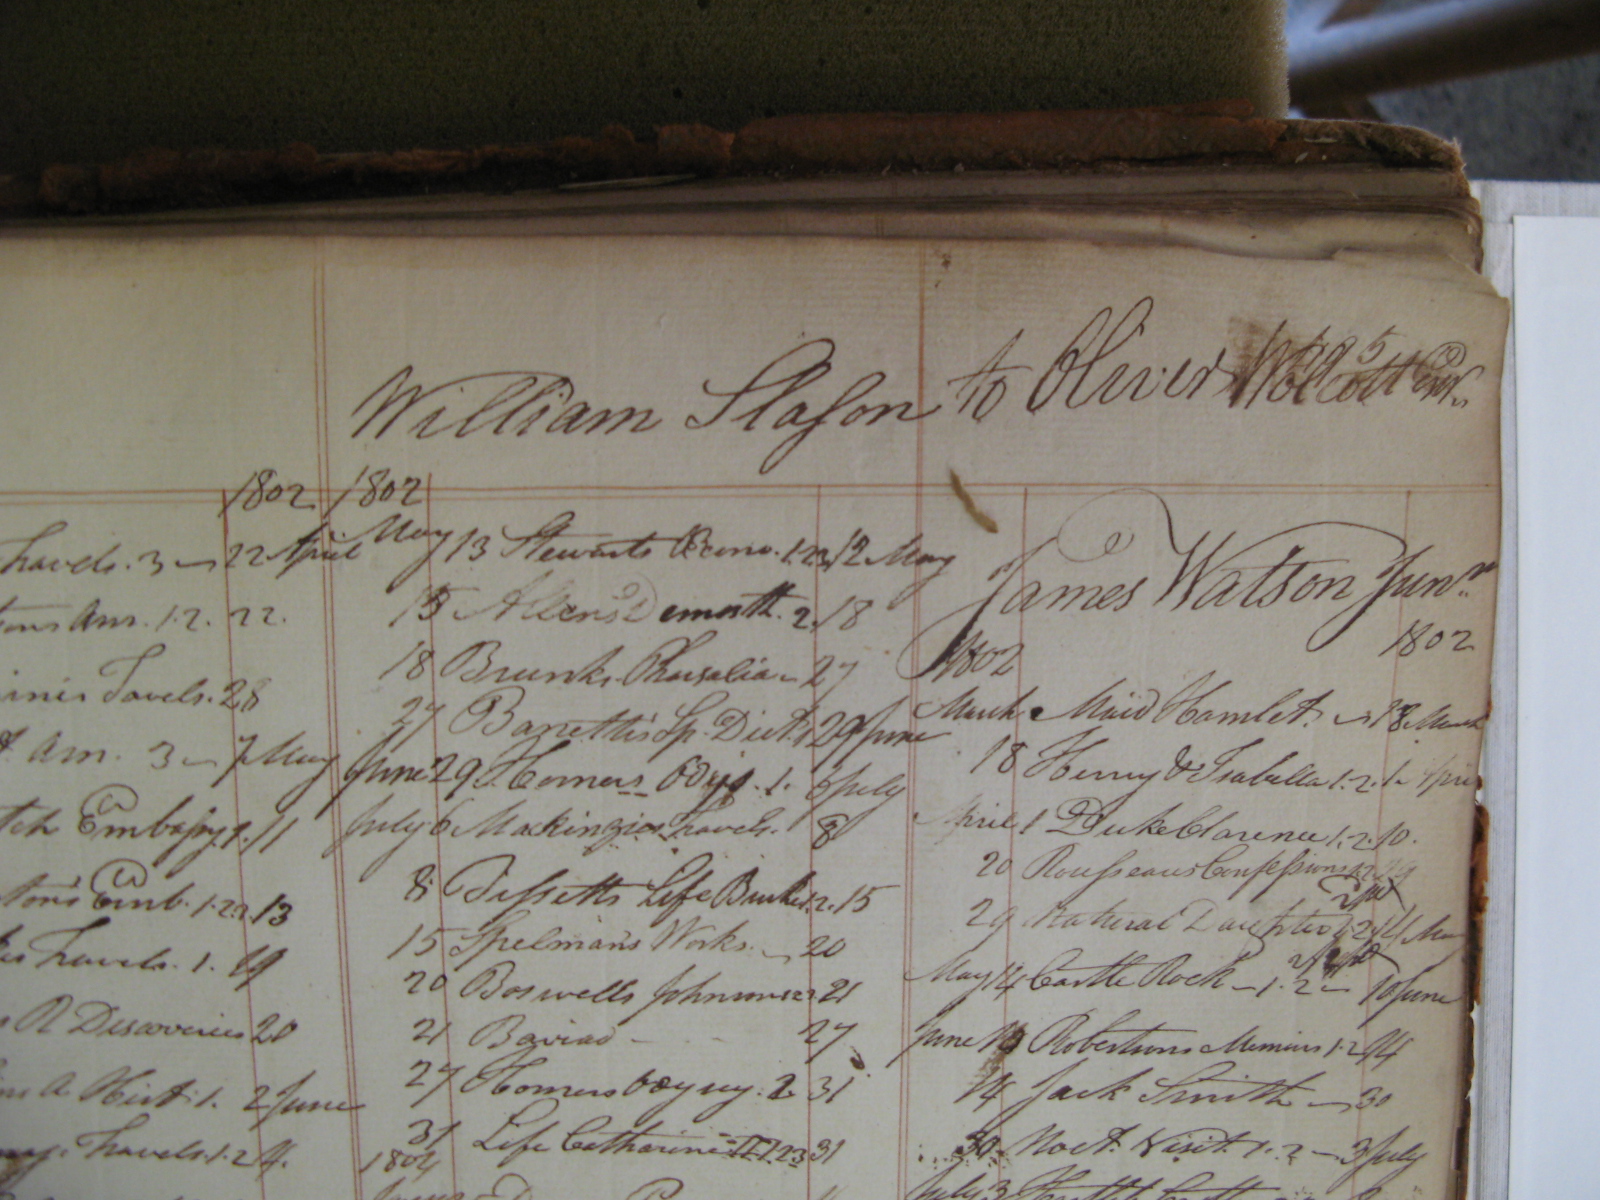 William Slason to Oliver Wolcott
1802
Travels. 3 22 April
Am. 1.2. 22.
28
Am. 3 7 May
Embassy 11
Emb. 1.2. 13
Travels. 1. 19
Discoveries 28
Hist. 1. 2 June
Travels. 1.2 4.
1802
May 13 Stewarts 12 May
15 Allens Demosth. 2. 18
18 Brunks Pharsalia 27
27 Barrettis Sp. Dict. 29 June
June 29 Homers Odys. 1. 6 July
July 6 Mackinzies Travels. 8
8 Bissetts Life Burke 1.2. 15
15 Spelman's Works 20
20 Boswells Johnson 21
21 Baviad 27
27 Homers Odyssey. 2 31
31 Life Catharine II 1.2.3 31
1804
James Watson Junr.
1802 1802
March Maid Hamlet. 18 March
18 Henry & Isabella 1.2. 1
April 1 Duke Clarence 1.2. 10.
20 Rousseaus Confessions
29 Natural Daughter 1.2 14 May
May 14 Castle Rock 1.2 10 June
June 10 Robertsons Memoirs 1.2 14
14 Jack Smith 30
30 Noct. Visit. 1.2 3 July
July 3